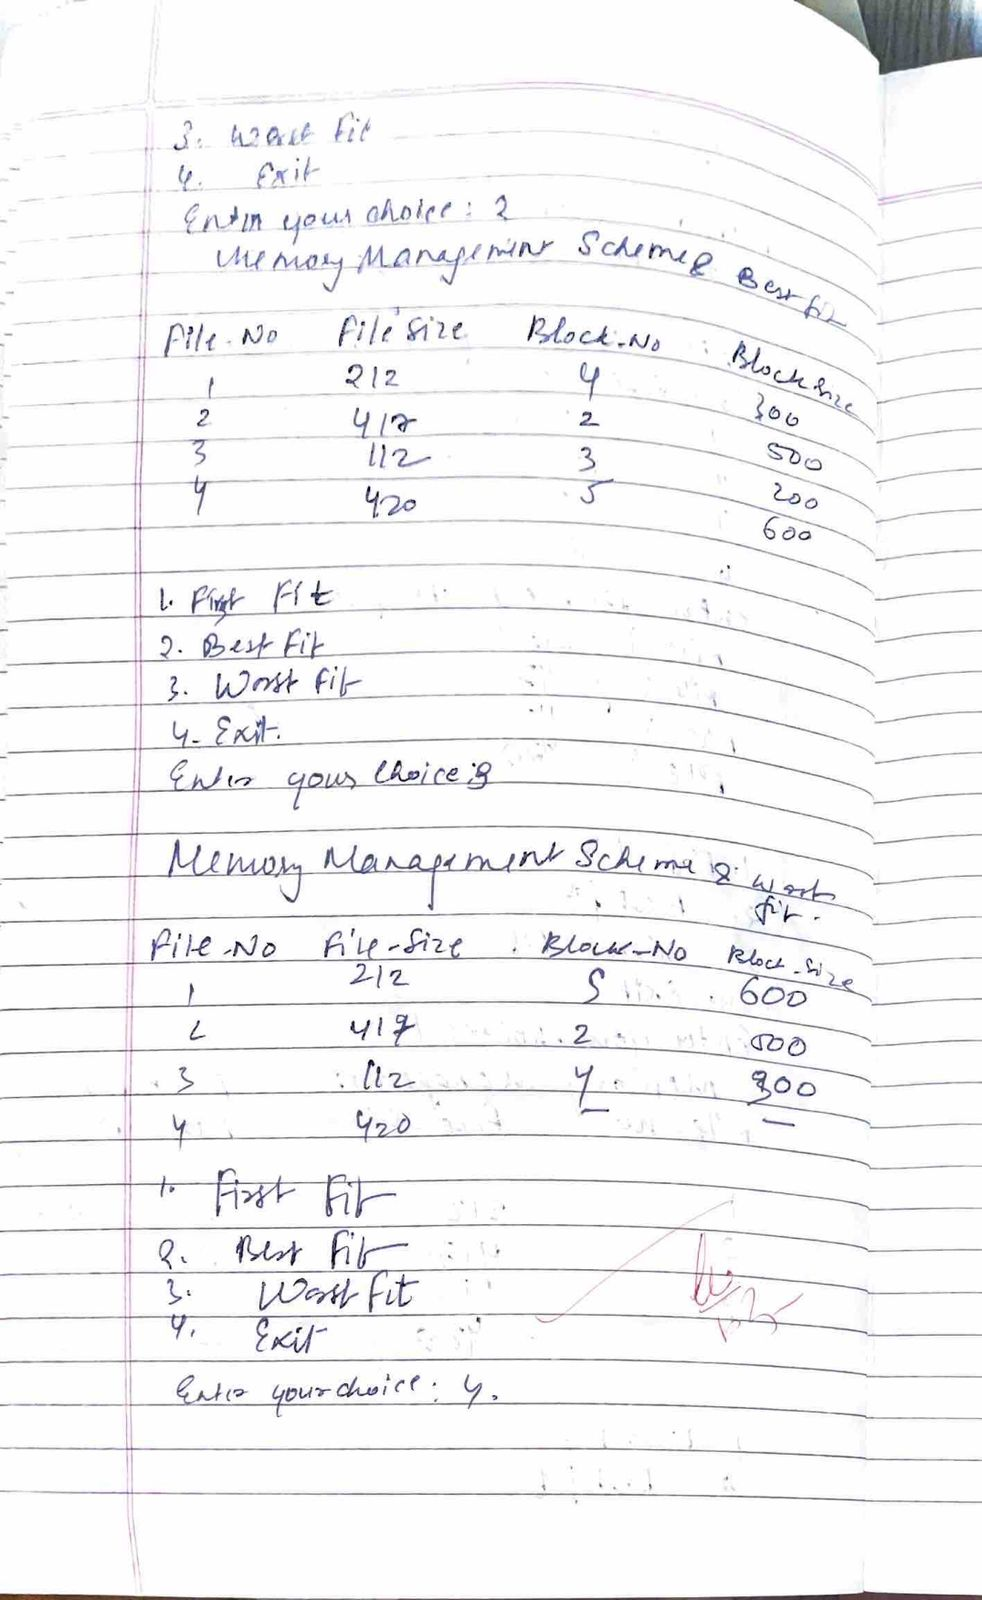 3. Worst Fit
4. Exit
Enter your choice: 2
Memory Management Scheme : Best fit
File.No File Size Block.No Block size
1 212 4 300
2 417 2 500
3 112 3 200
4 420 5 600
1. First Fit
2. Best Fit
3. Worst Fit
4. Exit.
Enter your choice : 3
Memory Management Scheme : Worst
fit.
File.No File-Size Block-No Block.Size
1 212 5 600
2 417 2 500
3 112 4 300
4 420 — —
1. First Fit
2. Best Fit
3. Worst Fit
4. Exit
Enter your choice: 4.